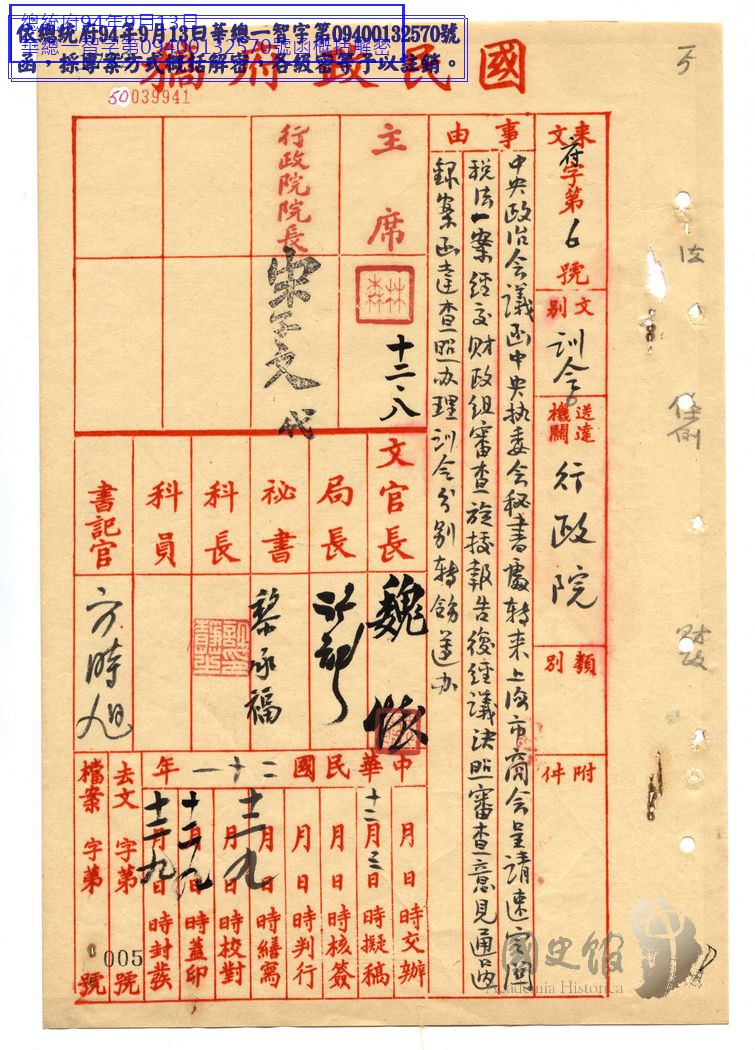 總統府94年9月13日
華總一智字第09400132570號函概括解密
依總統府94年9月13日華總一智字第09400132570號
函，採專案方式概括解密，各級密等予以註銷。
國民政府稿
50039941
來文
府字第6號
文別
訓令
送達機關
行政院
類別
附件
事由
中央政治會議函中央執委会秘書處轉來上海市商会呈請速定所
税法一案經交財政組審查旋據報告後經議决照審查意見通過
録案函達查照办理訓令分别轉飭遵办
主席
林森
十二、八
行政院院長
宋子文
代
文官長
魏懷
局長
祕書
黎承福
科長
科員
書記官
方時旭
中華民國二十一年
月日時交辦
十二月三日時擬稿
月日時核簽
月日時判行
月日時繕寫
十二月九日時校對
十二月九日時蓋印
十二月九日時封發
去文字第號
檔案字第號
005
財政
國史館
Academia Historica